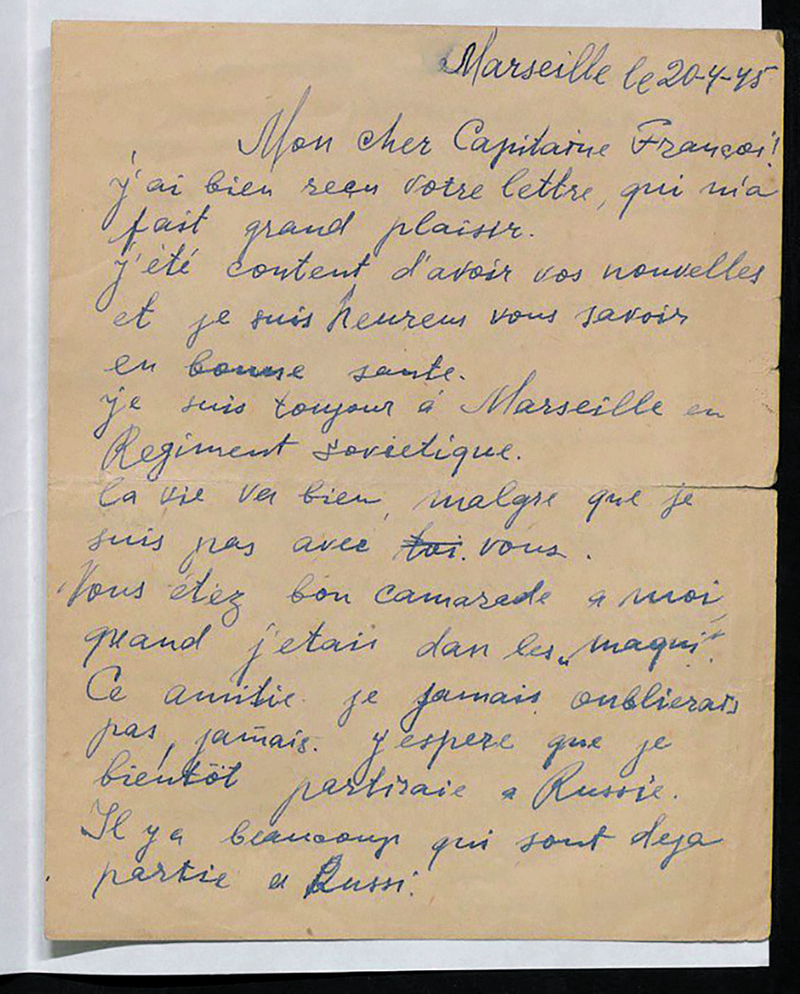 Marseille le 20-4-45
Mon cher Capitaine Françoi!
j'ai bien reçu votre lettre, qui m'a
fait grand plaisir.
j'été content d'avoir vos nouvelles
et je suis heureus vous savoir
en bonne sante.
je suis toujour à Marseille en
Regiment Sovietique.
La vie va bien, malgre que je
suis pas avec toi. vous.
Vous étez bon camarade a moi,
quand j'etais dan les „maqui".
Ce amitie je jamais oublierais
pas, jamais. j'espere que je
bientôt partiraie a Russie.
Il y a beaucoup qui sont deja
partie a Russi.